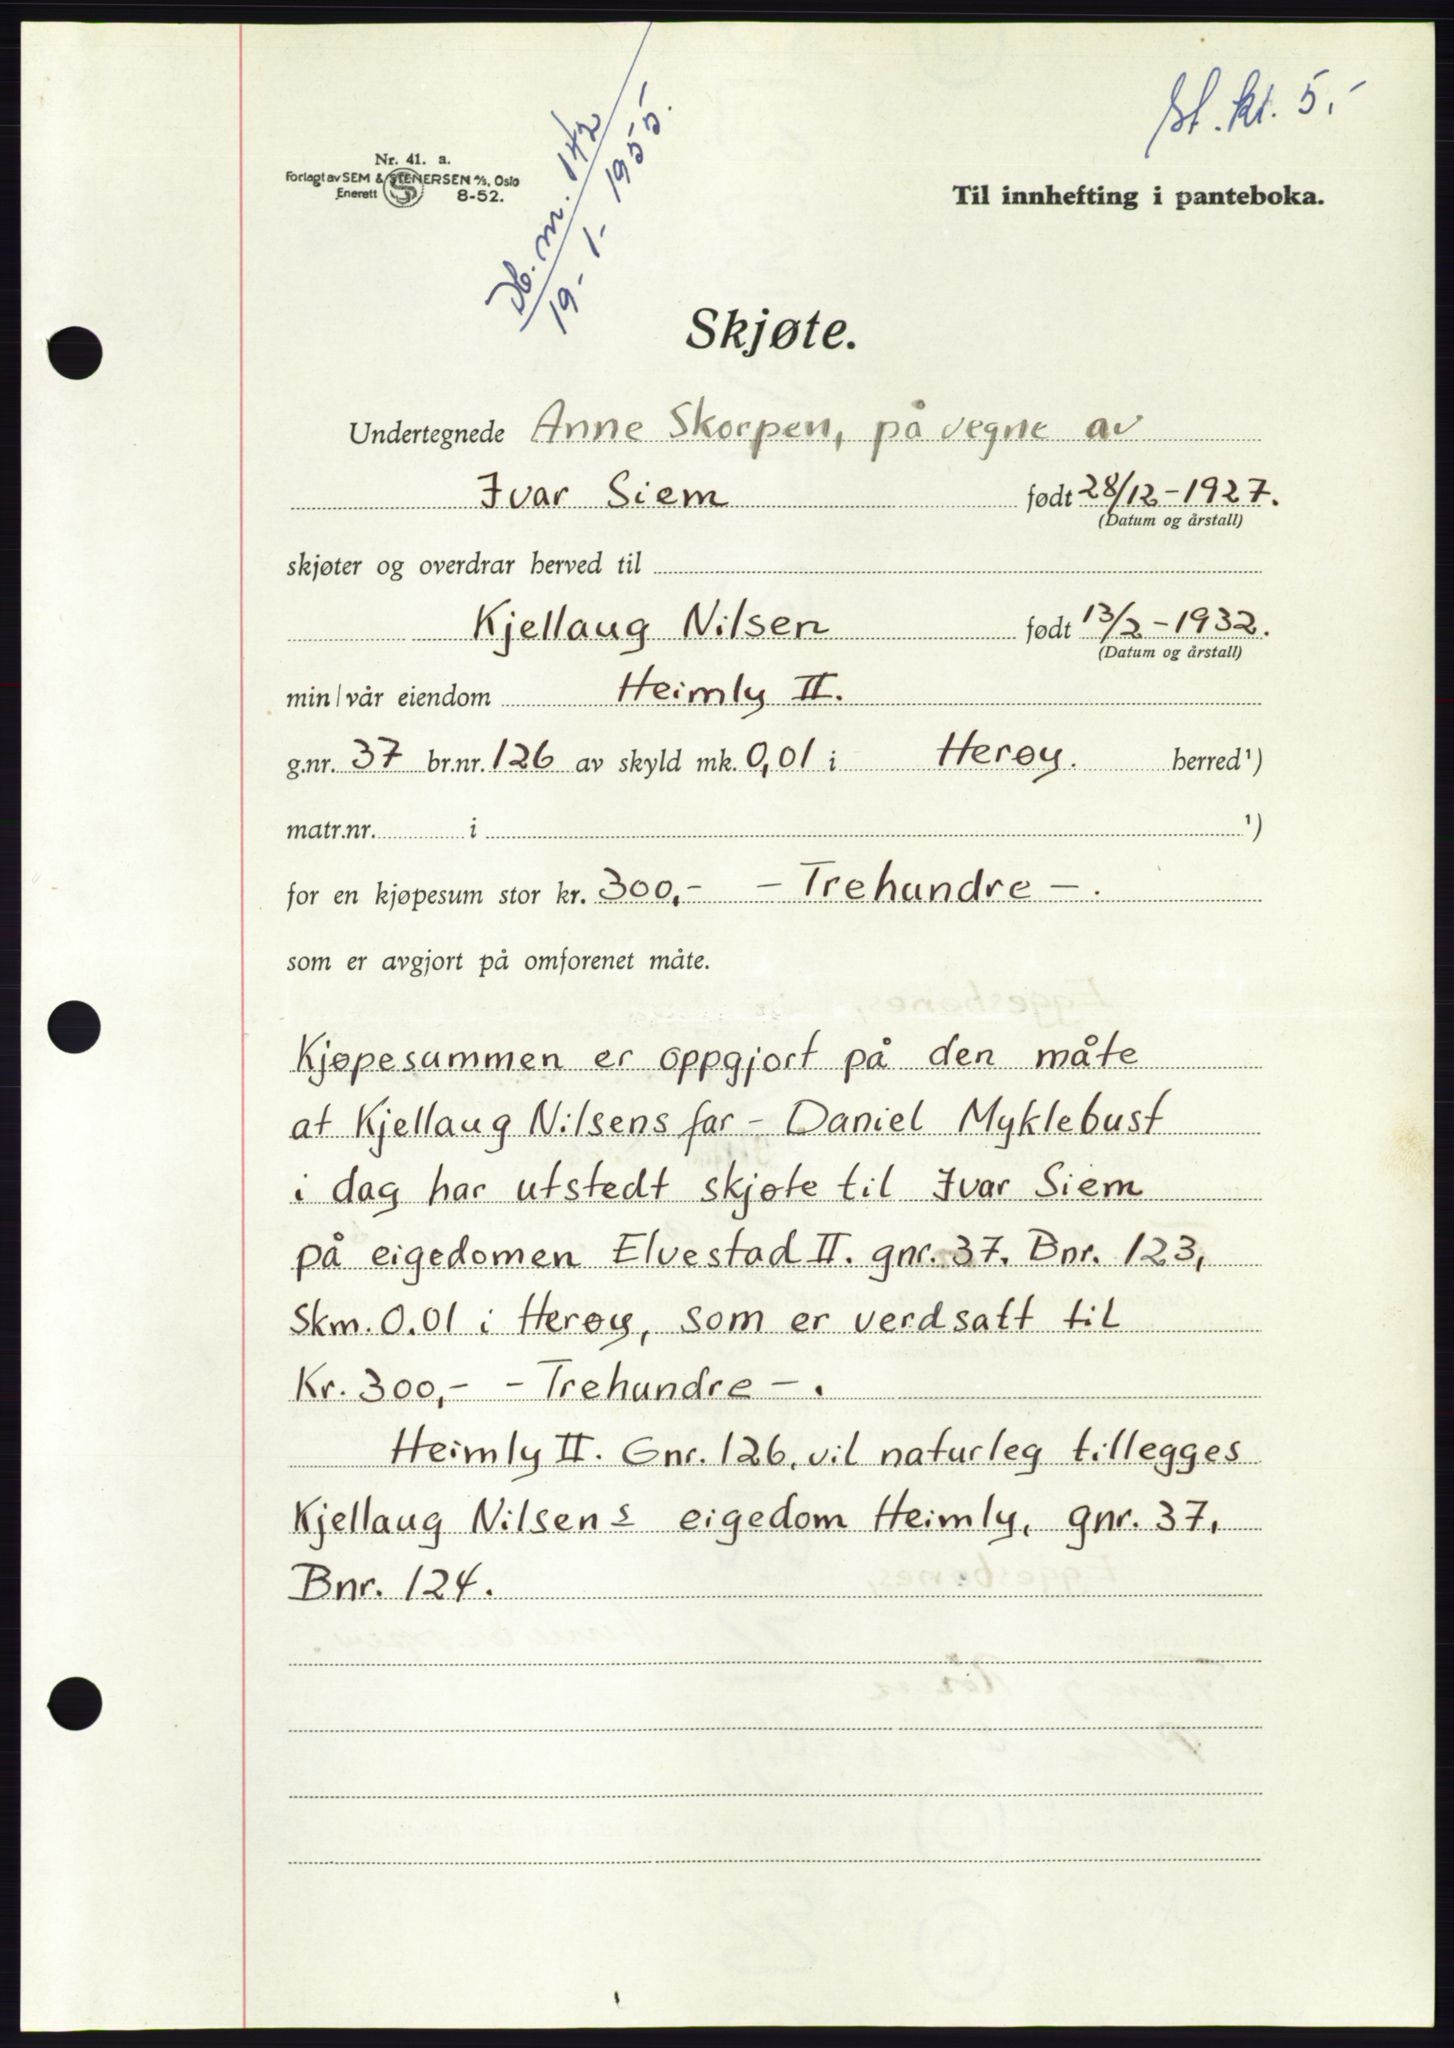 St. kr. 5.-
Nr. 41. a.
Forlagt av SEM & STENERSEN A/S, Oslo
Enerett 8-52.
Db. nr. 142
19-1-1955.
Til innhefting i panteboka.
Skjøte.
Undertegnede Anne Skorpen, på vegne av
Ivar Siem født 28/12-1927.
(Datum og årstall)
skjøter og overdrar herved til
Kjellaug Nilsen født 13/2-1932.
(Datum og årstall)
min/vår eiendom Heimly II.
g.nr. 37 br.nr. 126 av skyld mk. 0,01 i Herøy. herred¹)
matr.nr. i ¹)
for en kjøpesum stor kr. 300,- - Trehundre -.
som er avgjort på omforenet måte.
Kjøpesummen er oppgjort på den måte
at Kjellaug Nilsens far - Daniel Myklebust
i dag har utstedt skjøte til Ivar Siem
på eigedomen Elvestad II. gnr. 37. Bnr. 123,
Skm. 0.01 i Herøy, som er verdsatt til
Kr. 300,- - Trehundre -.
Heimly II. Gnr. 126, vil naturleg tillegges
Kjellaug Nilsens eigedom Heimly, gnr. 37,
Bnr. 124.